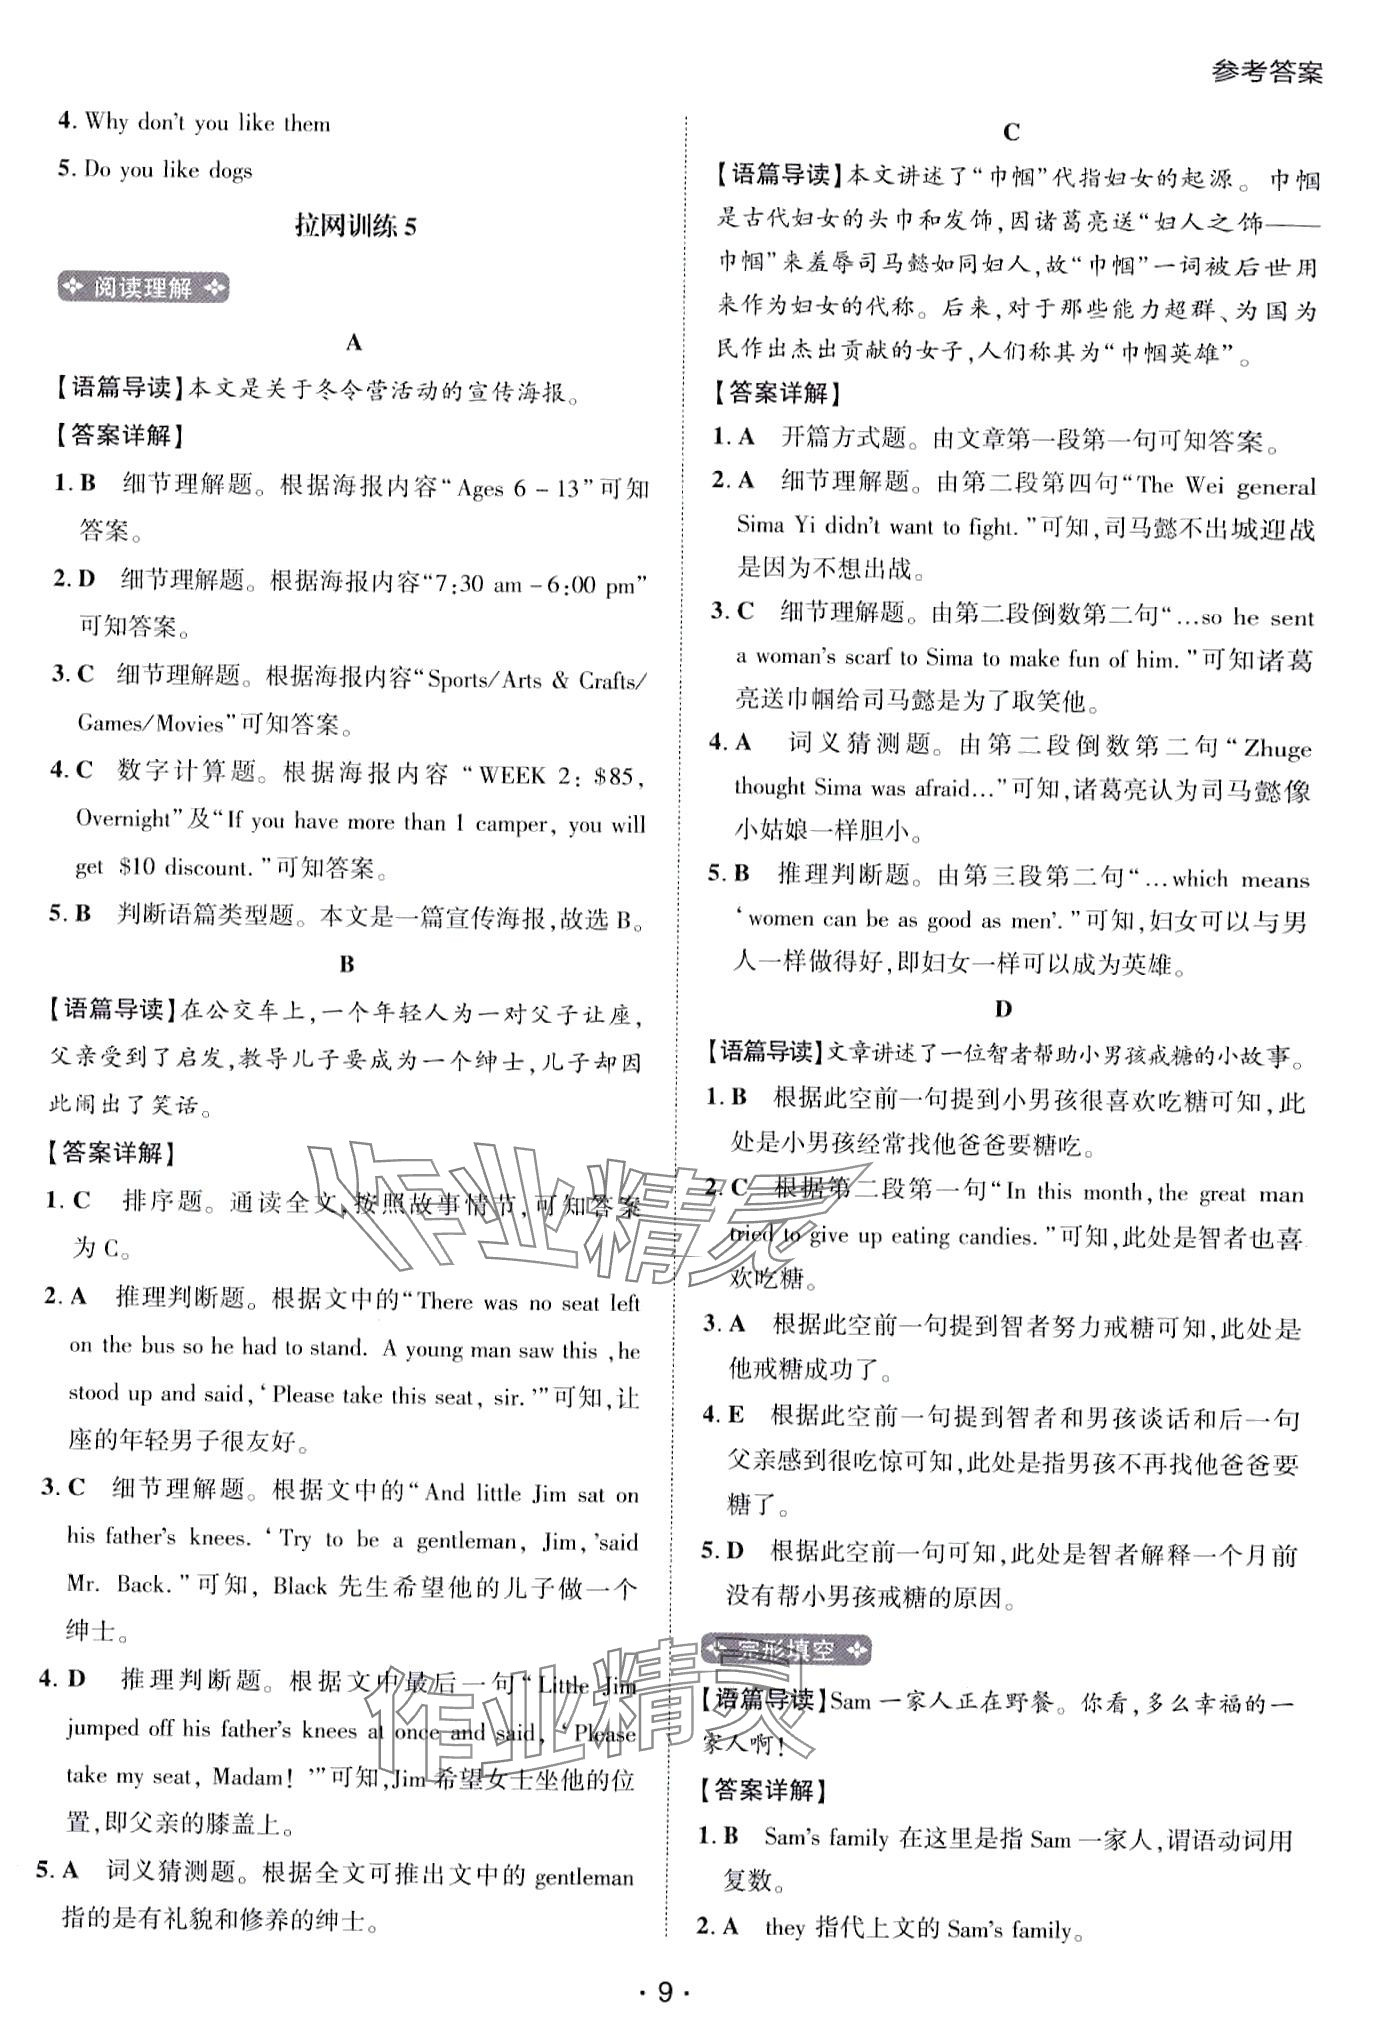 参考答案
4. Why don't you like them
5. Do you like dogs
拉网训练 5
阅读理解
A
【语篇导读】本文是关于冬令营活动的宣传海报。
【答案详解】
1. B 细节理解题。根据海报内容“Ages 6 – 13”可知
答案。
2. D 细节理解题。根据海报内容“7:30 am – 6:00 pm”
可知答案。
3. C 细节理解题。根据海报内容“Sports/Arts & Crafts/
Games/Movies”可知答案。
4. C 数字计算题。根据海报内容“WEEK 2: $85,
Overnight”及“If you have more than 1 camper, you will
get $10 discount.”可知答案。
5. B 判断语篇类型题。本文是一篇宣传海报,故选 B。
B
【语篇导读】在公交车上,一个年轻人为一对父子让座,
父亲受到了启发,教导儿子要成为一个绅士,儿子却因
此闹出了笑话。
【答案详解】
1. C 排序题。通读全文,按照故事情节,可知答案
为 C。
2. A 推理判断题。根据文中的“There was no seat left
on the bus so he had to stand. A young man saw this , he
stood up and said, ‘Please take this seat, sir.’”可知,让
座的年轻男子很友好。
3. C 细节理解题。根据文中的“And little Jim sat on
his father's knees. ‘Try to be a gentleman, Jim,’said
Mr. Back.”可知, Black 先生希望他的儿子做一个
绅士。
4. D 推理判断题。根据文中最后一句“Little Jim
jumped off his father's knees at once and said, ‘Please
take my seat, Madam! ’”可知,Jim 希望女士坐他的位
置,即父亲的膝盖上。
5. A 词义猜测题。根据全文可推出文中的 gentleman
指的是有礼貌和修养的绅士。
C
【语篇导读】本文讲述了“巾帼”代指妇女的起源。巾帼
是古代妇女的头巾和发饰,因诸葛亮送“妇人之饰——
巾帼”来羞辱司马懿如同妇人,故“巾帼”一词被后世用
来作为妇女的代称。后来,对于那些能力超群、为国为
民作出杰出贡献的女子,人们称其为“巾帼英雄”。
【答案详解】
1. A 开篇方式题。由文章第一段第一句可知答案。
2. A 细节理解题。由第二段第四句“The Wei general
Sima Yi didn't want to fight.”可知,司马懿不出城迎战
是因为不想出战。
3. C 细节理解题。由第二段倒数第二句“…so he sent
a woman's scarf to Sima to make fun of him.”可知诸葛
亮送巾帼给司马懿是为了取笑他。
4. A 词义猜测题。由第二段倒数第二句“Zhuge
thought Sima was afraid…”可知,诸葛亮认为司马懿像
小姑娘一样胆小。
5. B 推理判断题。由第三段第二句“…which means
‘women can be as good as men’.”可知,妇女可以与男
人一样做得好,即妇女一样可以成为英雄。
D
【语篇导读】文章讲述了一位智者帮助小男孩戒糖的小故事。
1. B 根据此空前一句提到小男孩很喜欢吃糖可知,此
处是小男孩经常找他爸爸要糖吃。
2. C 根据第二段第一句“In this month, the great man
tried to give up eating candies.”可知,此处是智者也喜
欢吃糖。
3. A 根据此空前一句提到智者努力戒糖可知,此处是
他戒糖成功了。
4. E 根据此空前一句提到智者和男孩谈话和后一句
父亲感到很吃惊可知,此处是指男孩不再找他爸爸要
糖了。
5. D 根据此空前一句可知,此处是智者解释一个月前
没有帮小男孩戒糖的原因。
完形填空
【语篇导读】Sam 一家人正在野餐。你看,多么幸福的一
家人啊!
【答案详解】
1. B Sam's family 在这里是指 Sam 一家人,谓语动词用
复数。
2. A they 指代上文的 Sam's family。
作业精灵
作业精灵
· 9 ·